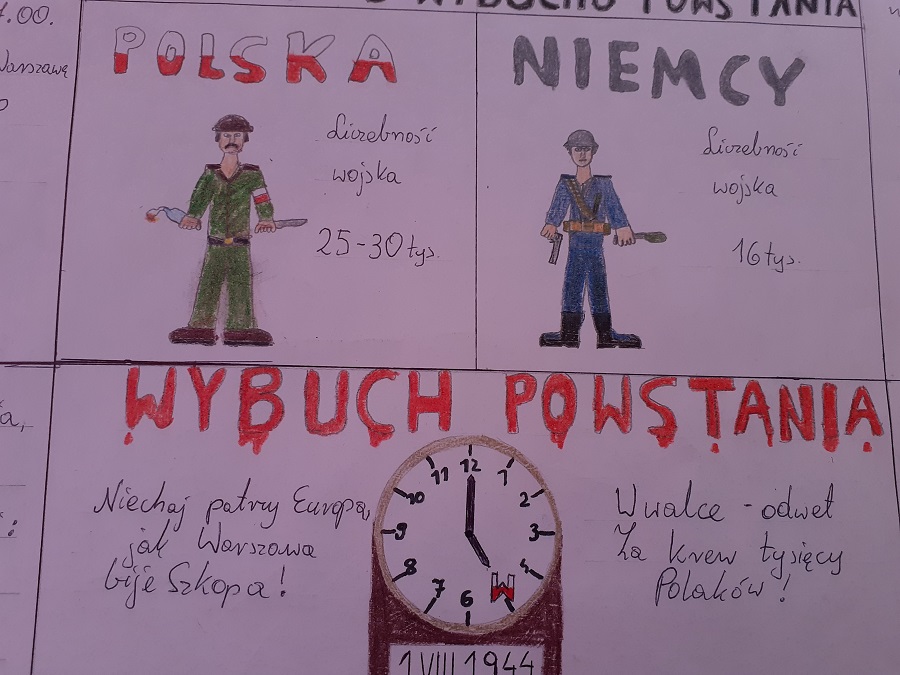 7.00.
WYBUCHU POWSTANIA
Warszawę
POLSKA
Liczebność
wojska
25-30 tys.
NIEMCY
Liczebność
wojska
16 tys.
WYBUCH POWSTANIA
Niechaj patrzy Europa,
jak Warszawa
bije Szkopa!
12
1
2
3
4
W
6
7
8
9
10
11
1 VIII 1944
W walce - odwet
Za krew tysięcy
Polaków!